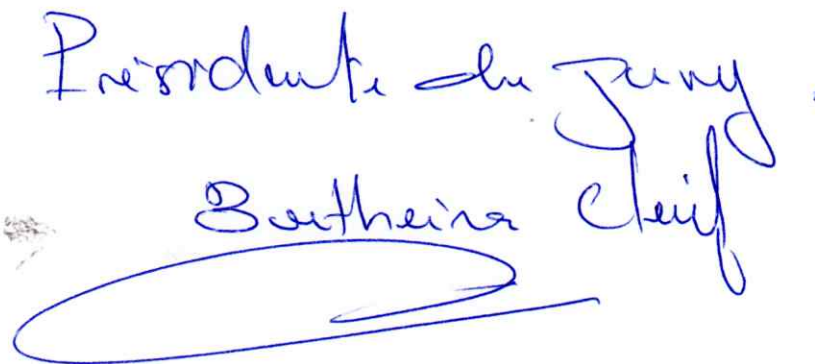 Présidente du Jury
Boutheina Cherif